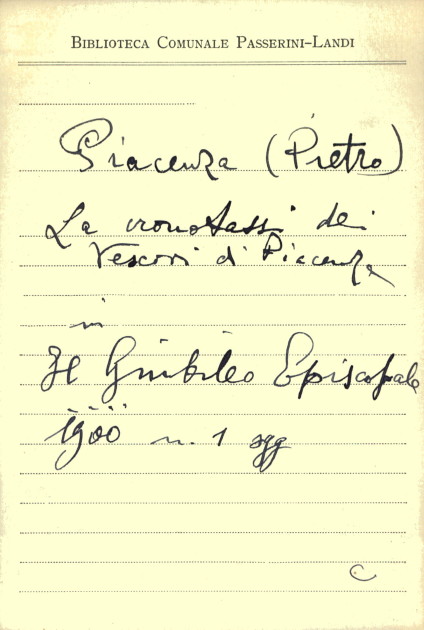 BIBLIOTECA COMUNALE PASSERINI-LANDI
Piacenza (Pietro)
La cronotassi dei
Vescovi di Piacenza
in
Il Giubileo Episcopale
1900 n. 1 sgg
C